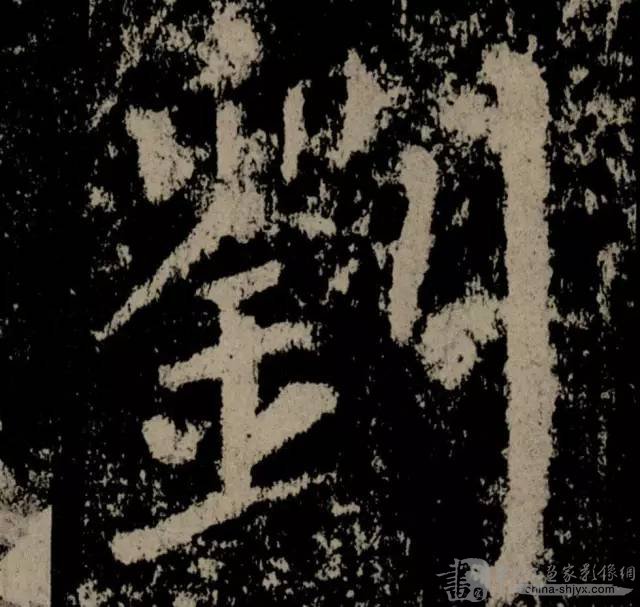 劉
書畫家影像網
china-shjyx.com